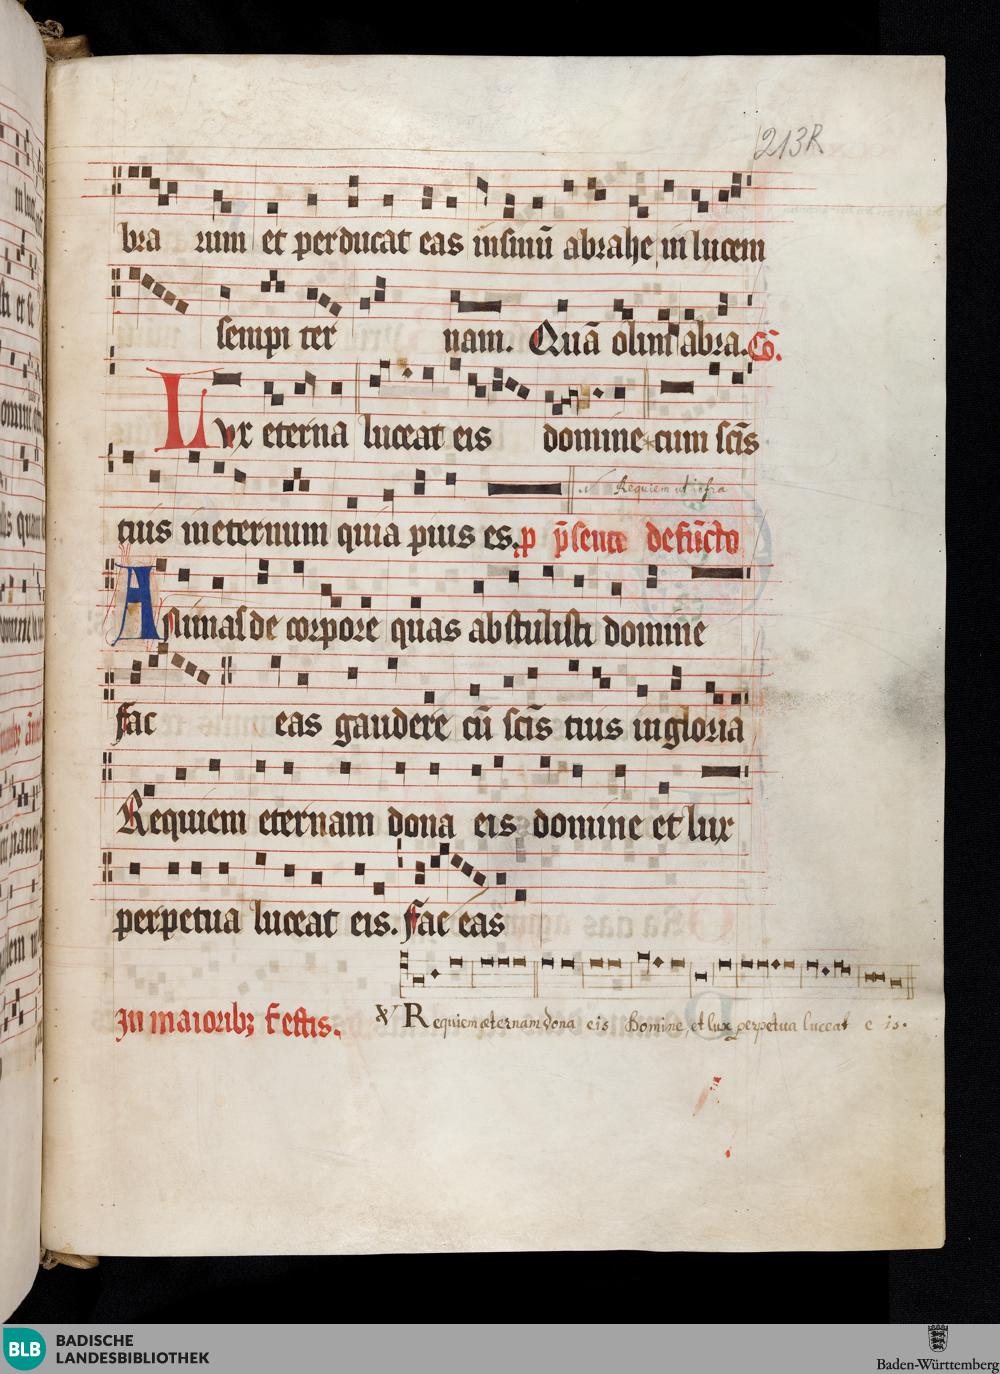 213R
bra rum et perducat eas insinū abrahe in lucem
sempi ter nam. Quā olim abra. Cō.
Lux eterna luceat eis domine cum scīs
Requiem ut infra
tuis in eternum quia pius es. p p̄senti defūcto
Animas de corpore quas abstulisti domine
fac eas gaudere cū scīs tuis in gloria
Requiem eternam dona eis domine et lux
perpetua luceat eis. fac eas
In maioribꝫ festis. ℣ Requiem æternam dona eis Domine, et lux perpetua luceat e is.
BLB BADISCHE
LANDESBIBLIOTHEK
Baden-Württemberg